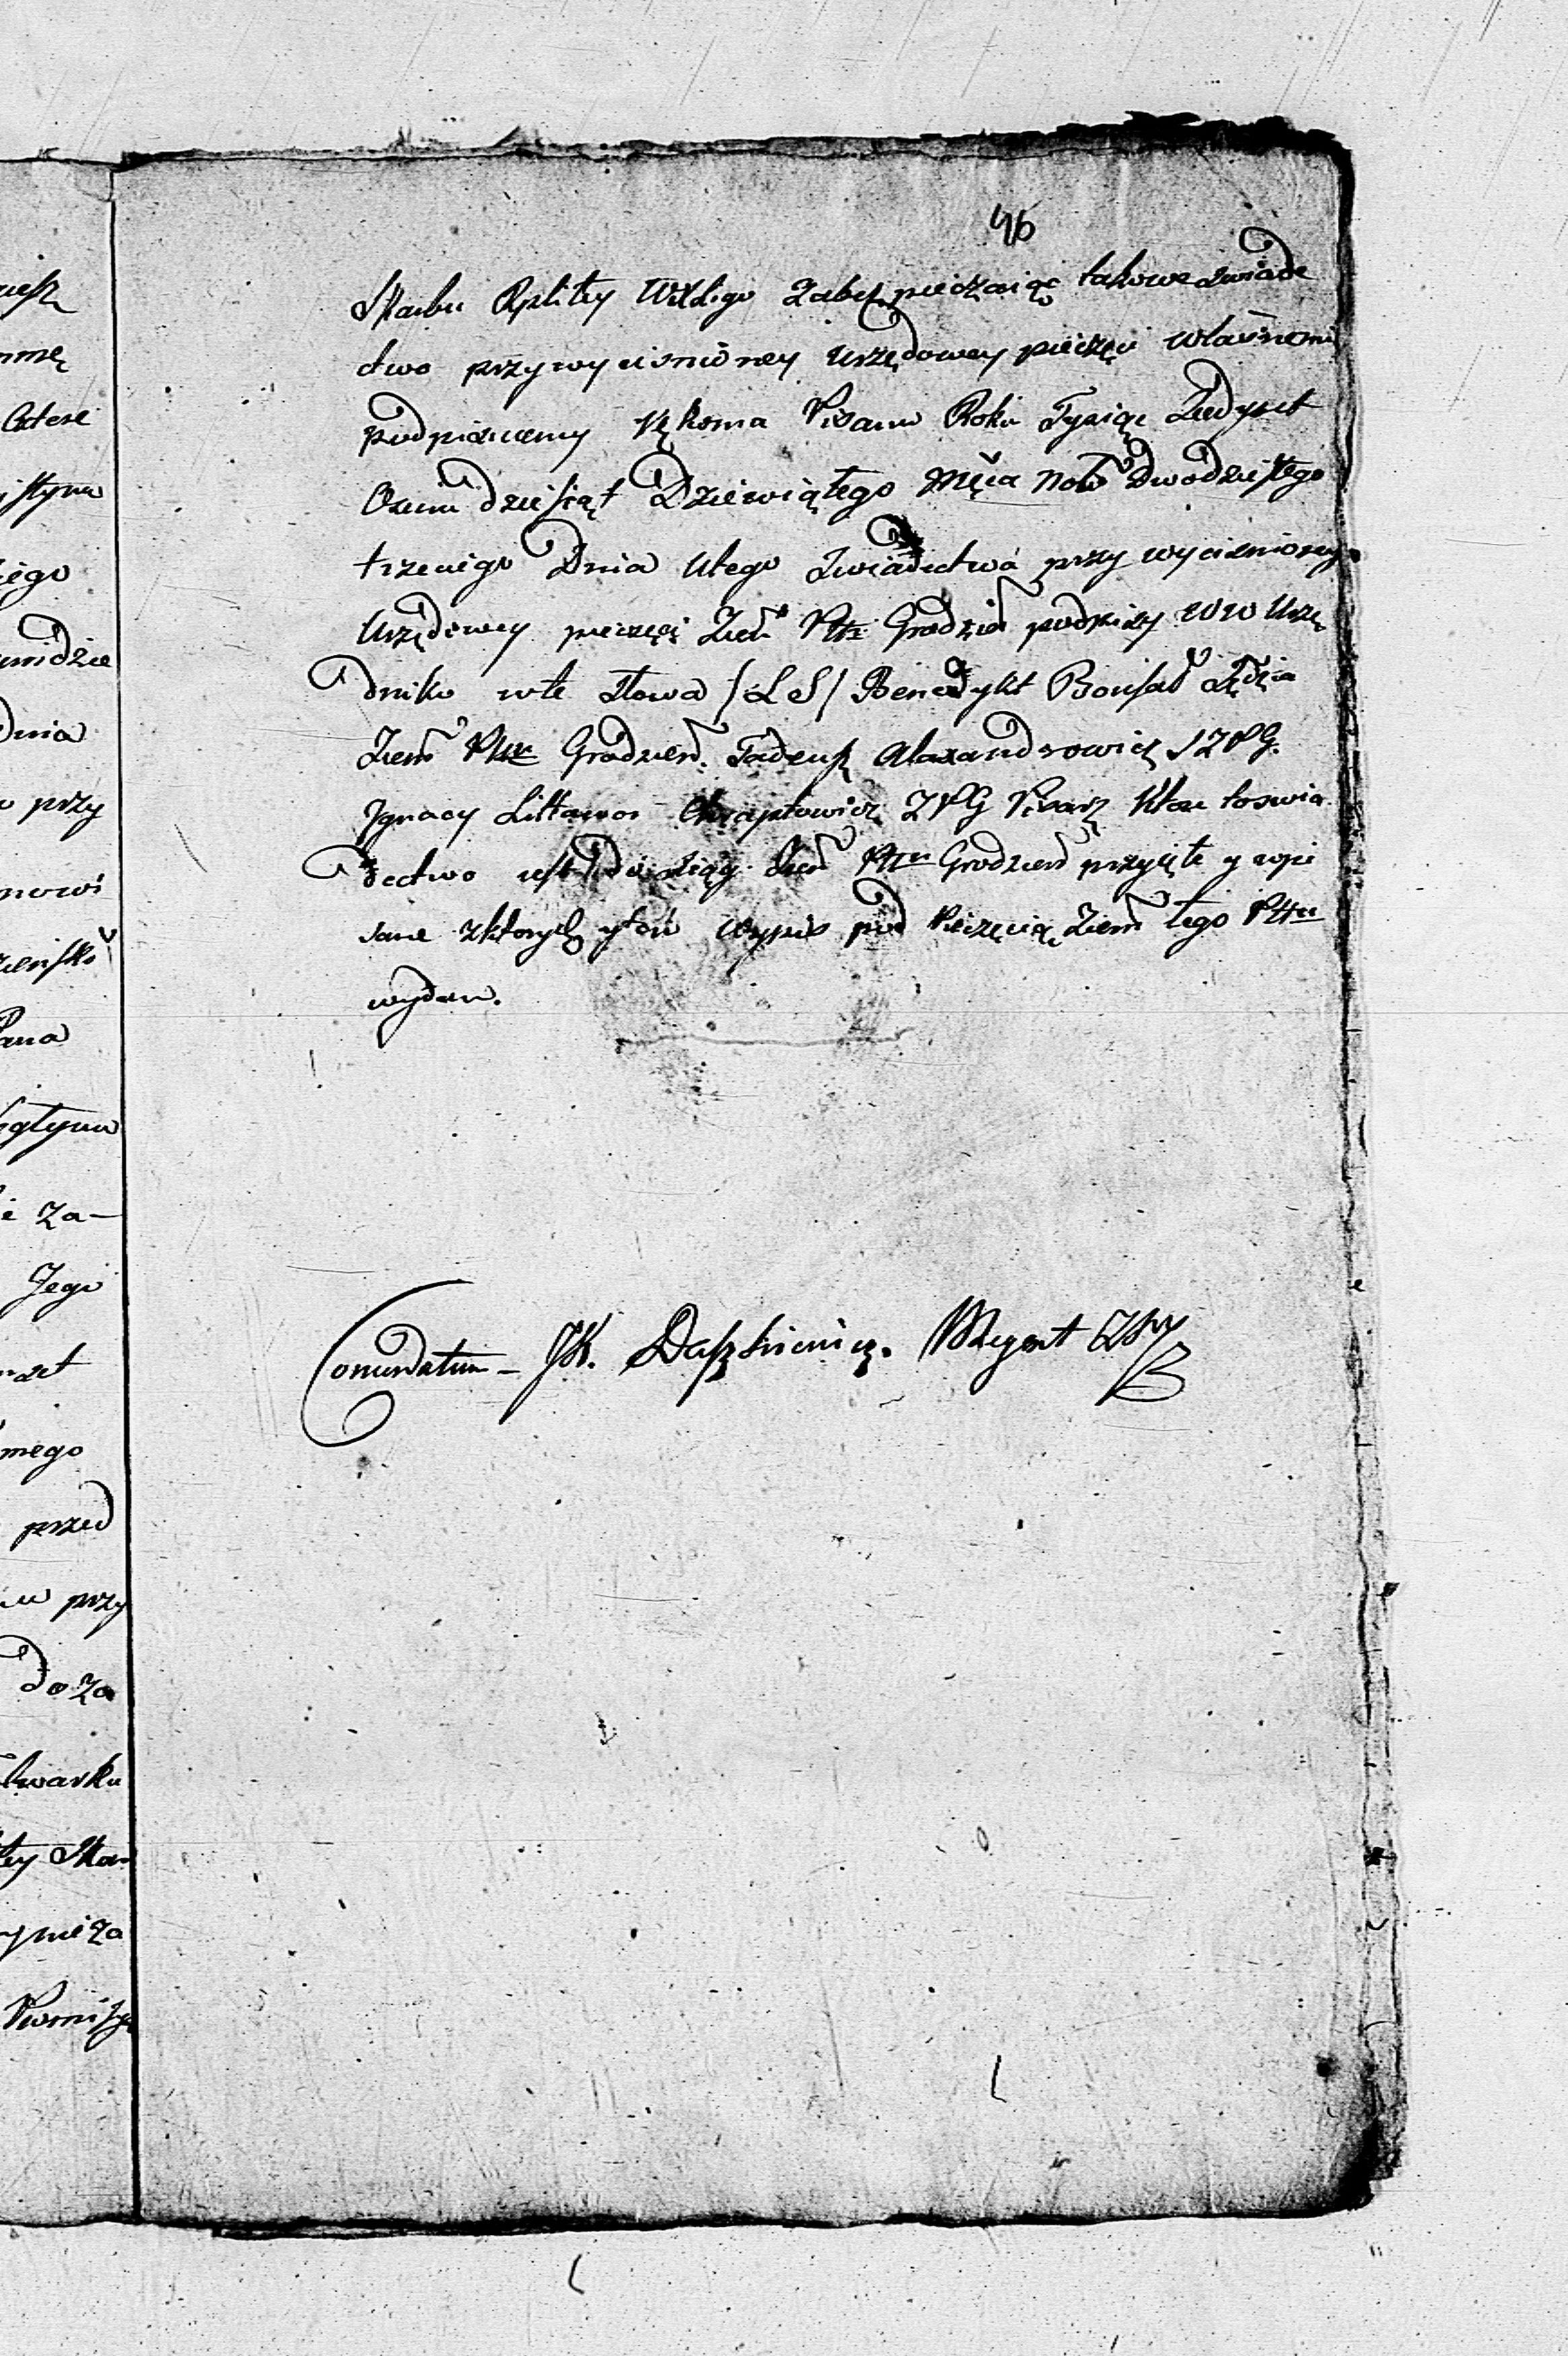 46
Skarbu Rplitey WXLigo Zabespieczaiąc takowe Swiade
ctwo przy wycisnioney Urzędowey pieczęci własnemi
podpisuiemy rękoma Pisano Roku Tysiąc Siedmset
Osmdziesiąt Dziewiątego Mca Nowr Dwodziestego
trzeciego Dnia Utego Swiadectwa przy wycisnioney
Urzędowey pieczęci Ziem Pttu Grodzień podpisy WW Urzę
dniko w te słowa /LS/ Benedykt Bouffał Sędzia
Ziem Pttu Grodzień. Tadeusz Alaxandrowicz SZPG.
Ignacy Littawor Chreptowicz ZPG Pisarz Które to swia
dectwo iest do xiąg Ziem Pttu Grodzień przyięte y wpi
sane z których y ten wypis pod Pieczęcią Ziem tego Pttu
wydan.
Coneordatum – JK. Daszkiewicz. Regent
uesz
mmę
Cztere
istym
iego
dnia
przy
nowi
Pana
Za–
Jego
mego
przed
przy
Do Za
lwarku
tey Skar